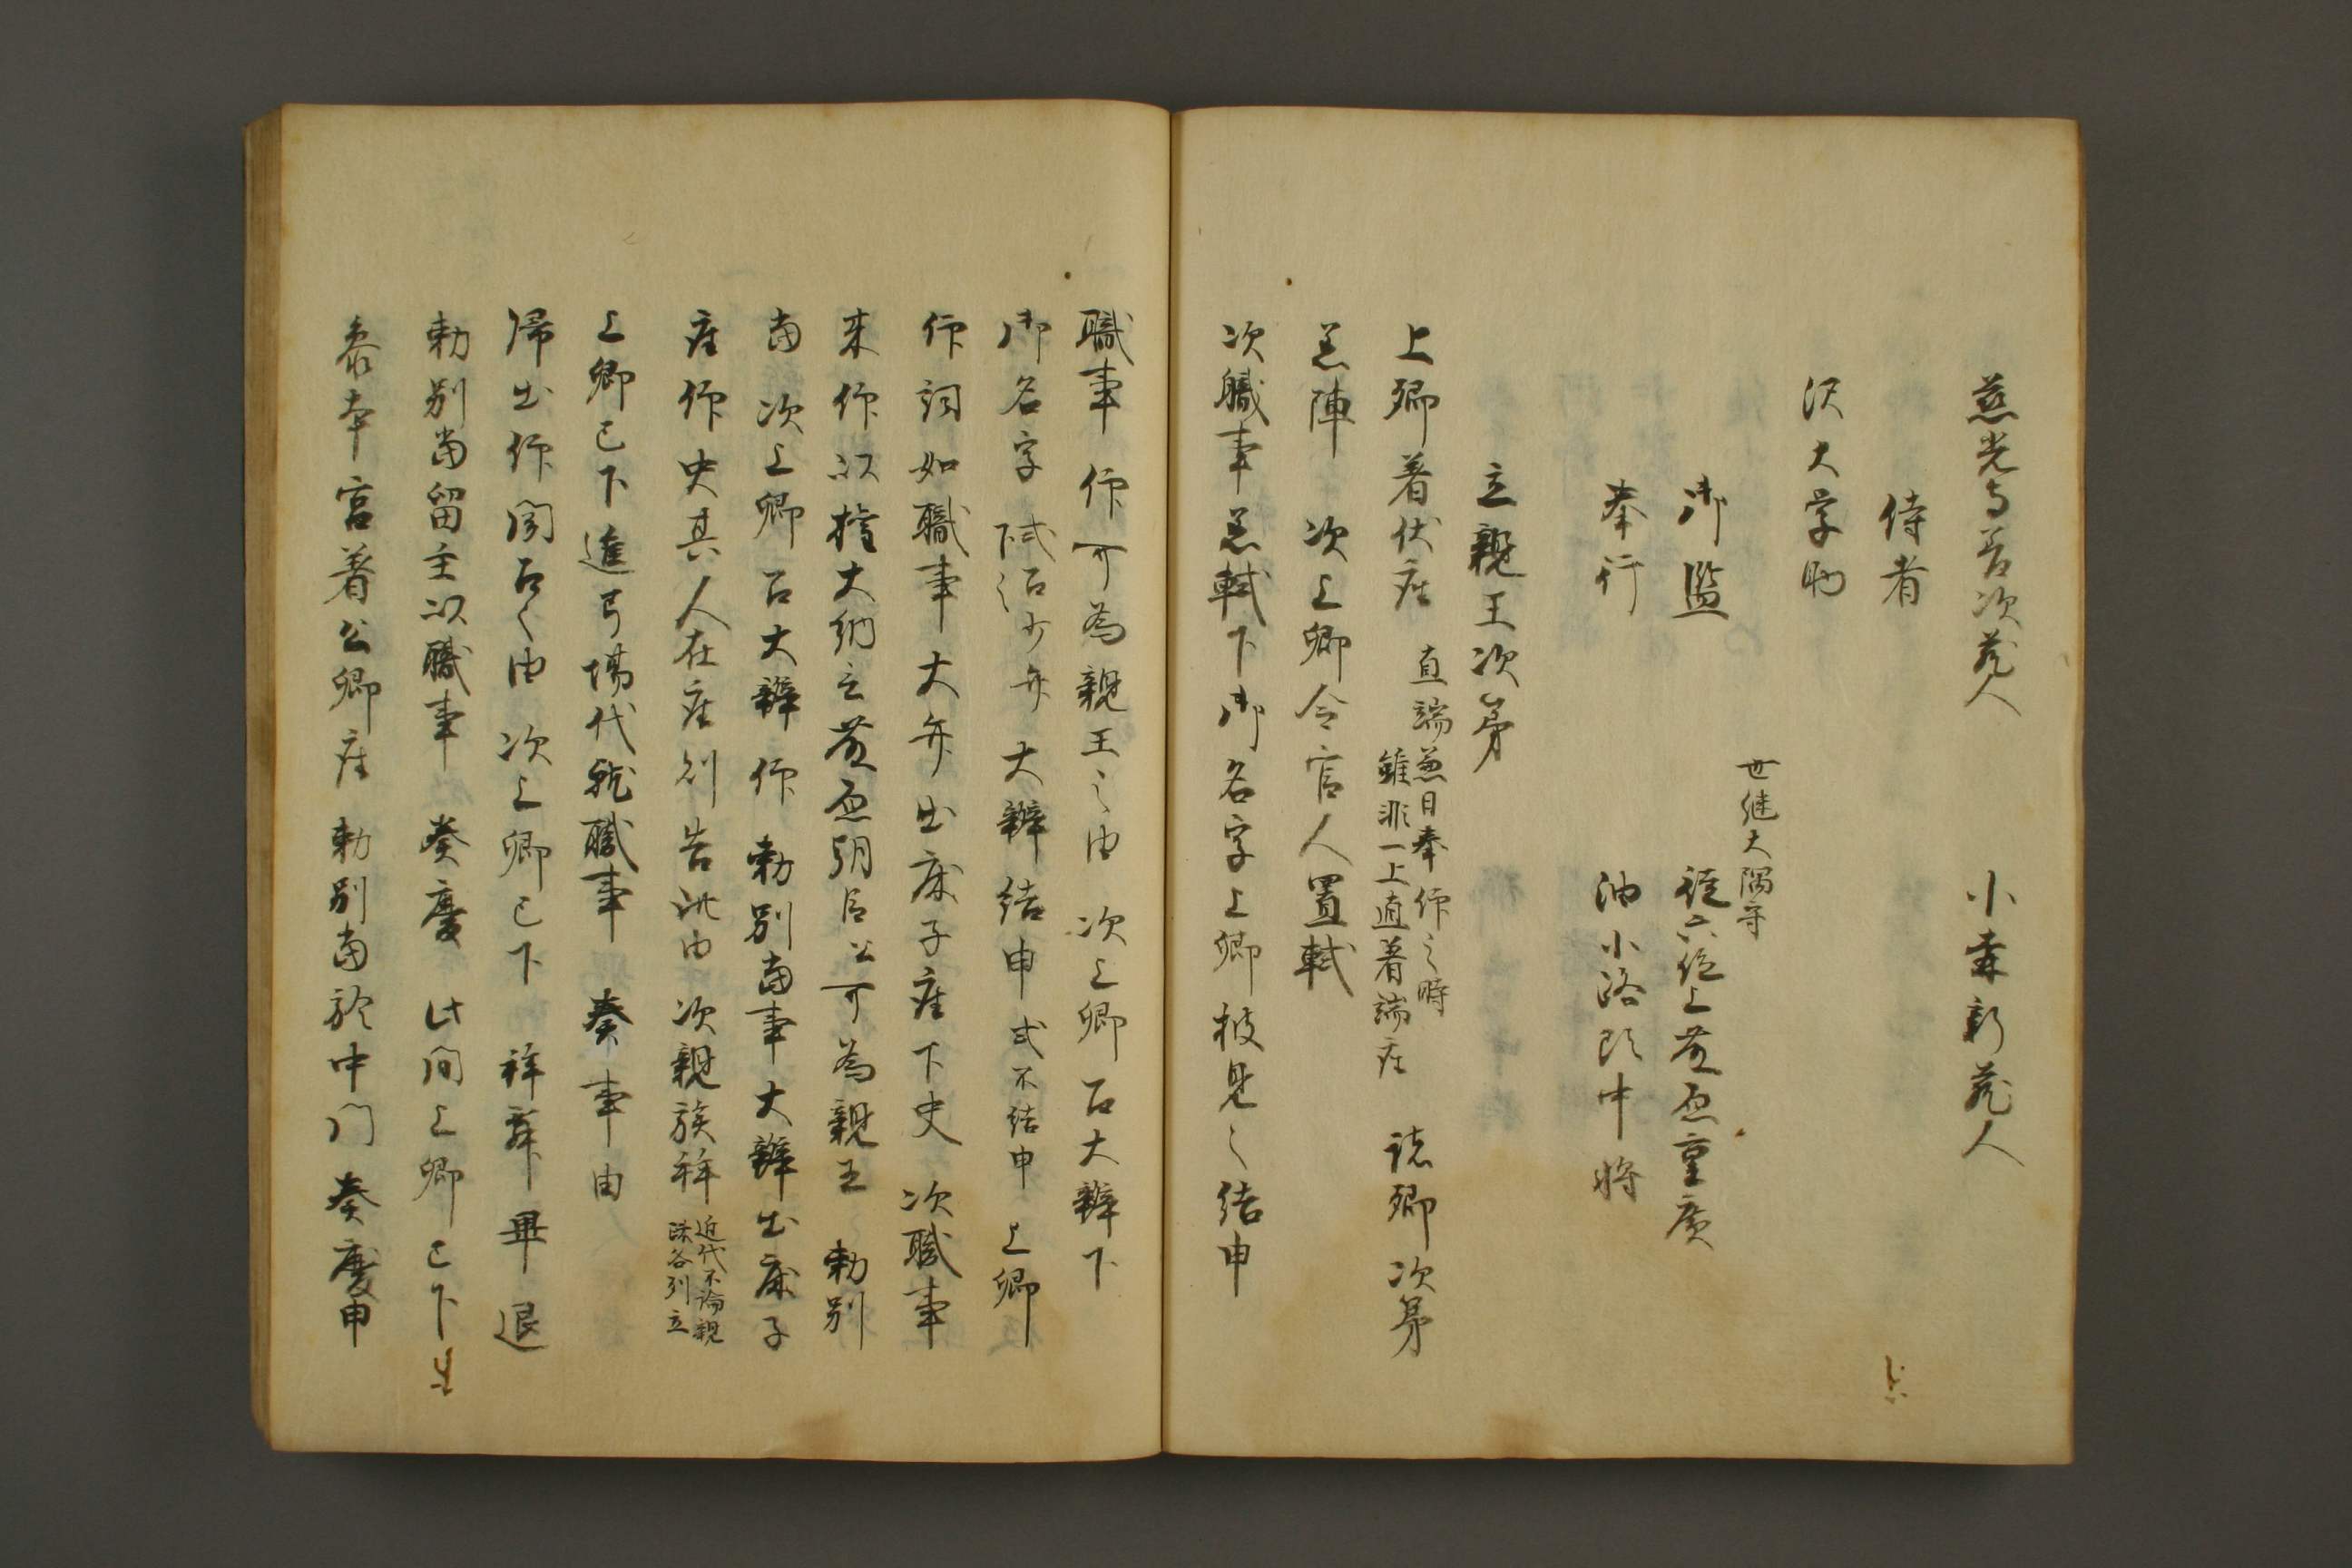 慈光寺若次蔵人　小森新蔵人
侍者
沢大学助
世継大隅守
御監　従六位上藤原重広
奉行　油小路頭中将
立親王次第
上卿著伏座　直端兼日奉仰之時
雖非一上直著端座　諸卿次第
着陣　次上卿令官人置軾
次職事着軾下御名字上卿披見之結申
職事仰可為親王之由　次上卿召大辨下
御名字　或召少弁下之　大辨結申　或不結申　上卿
仰詞如職事大弁出床子座下史　次職事
来仰以権大納言藤原朝臣公可為親王　勅別
当　次上卿召大辨仰　勅別当事大辨出床子
座仰史其人在座則告此由　次親族拝　近代不論親
踈各列立
上卿已下進弓場代就職事　奏事由
帰出仰聞召之由　次上卿已下　拝舞畢退
勅別当留立以職事　奏慶　此間上卿已下
参本宮著公卿座　勅別当於中門奏慶申